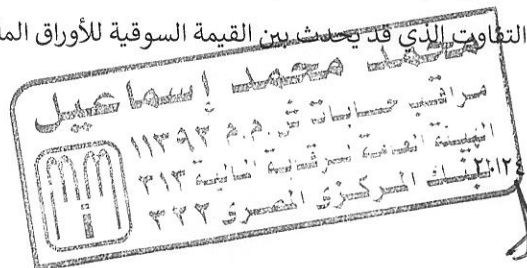 التفاوت الذي قد يحدث بين القيمة السوقية للأوراق الما
محمد محمد إسماعيل
مراقب حسابات س.م.م ١١٣٩٣
الهيئة العامة للرقابة المالية ٣١٣
البنك المركزى المصرى ٣٢٢